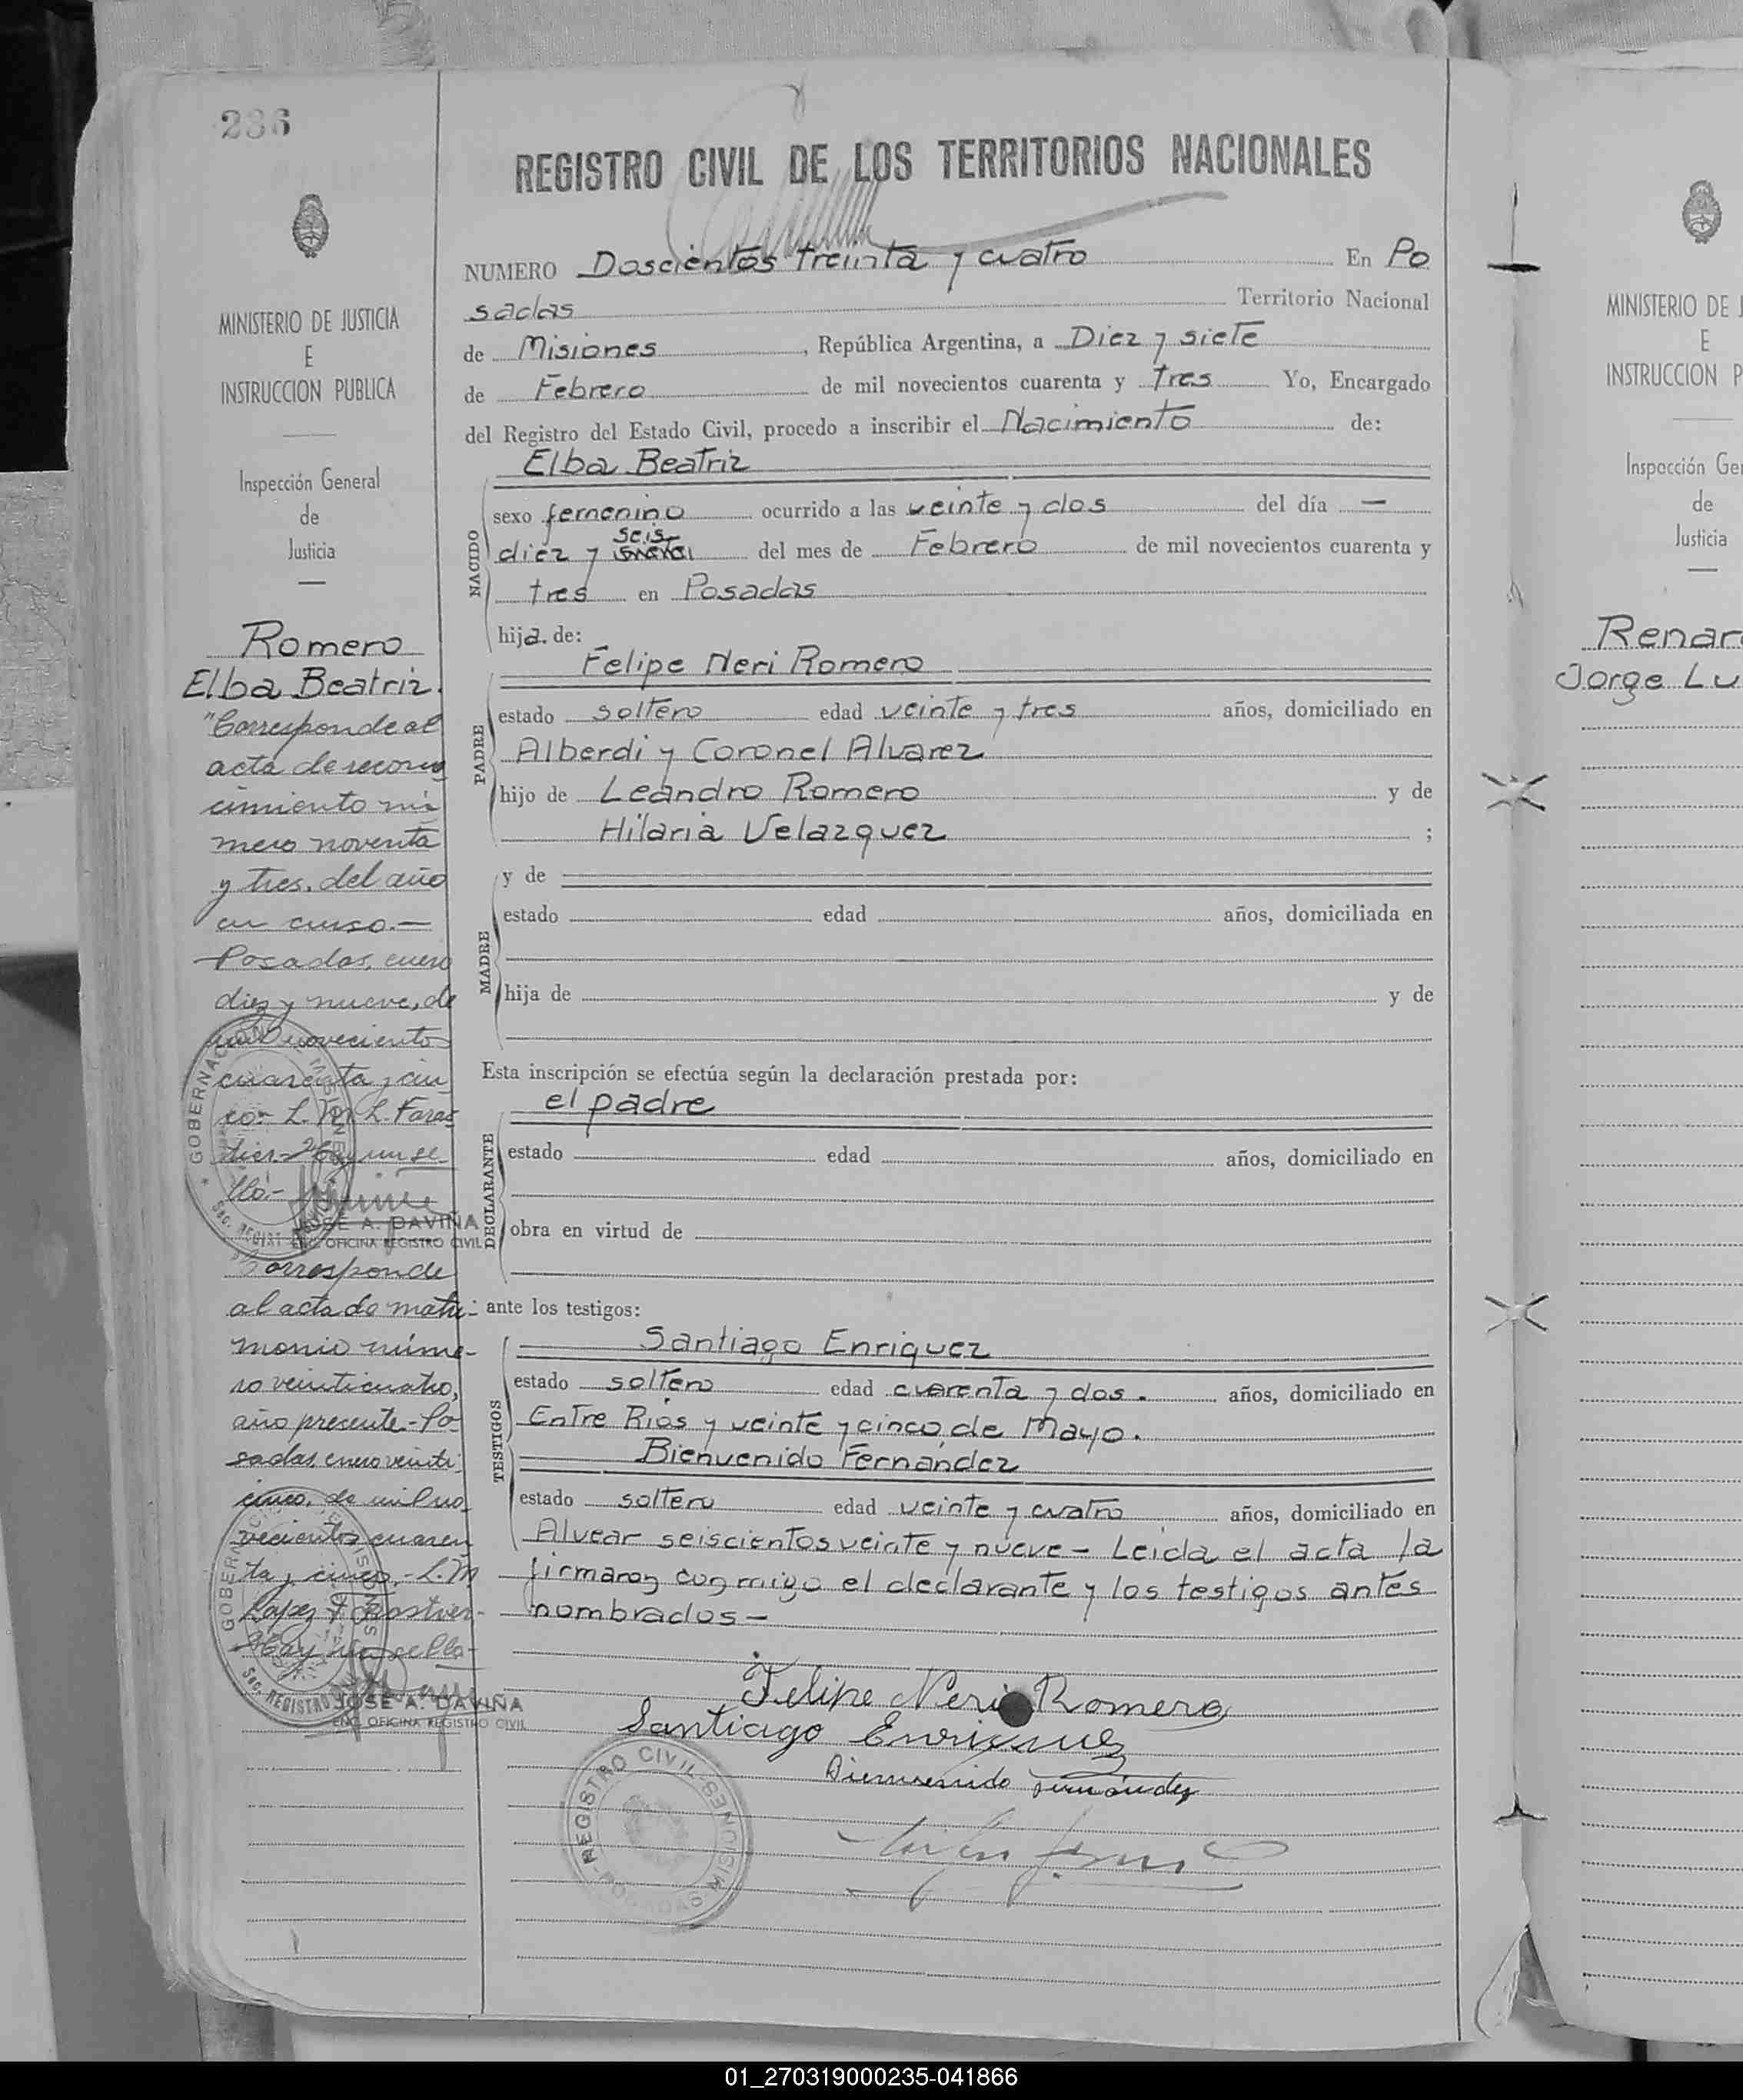 236
MINISTERIO DE JUSTICIA
E
INSTRUCCION PUBLICA
Inspección General
de
Justicia
Romero
Elba Beatriz.
"Corresponde al
acta de recono
cimiento nú
mero noventa
y tres, del año
en curso.—
Posadas, enero
diez y nueve, de
mil novecientos
cuarenta y cin
co.- L. M. L. Foras
tier.- Hay un se
llo.-
GOBERNACION
JOSÉ A. DAVIÑA
ENC. OFICINA REGISTRO CIVIL
"Corresponde
al acta de matri-
monio núme-
ro veinticuatro,
año presente.- Po-
sadas, enero veinti
cinco, de mil no
vecientos cuaren
ta y cinco.- L. M
Lopez Forastier-
Hay un sello-
Sec. REGISTRO
JOSÉ A. DAVIÑA
ENC. OFICINA REGISTRO CIVIL
REGISTRO CIVIL DE LOS TERRITORIOS NACIONALES
NUMERO Doscientos treinta y cuatro En Po
sadas Territorio Nacional
de Misiones , República Argentina, a Diez y siete
de Febrero de mil novecientos cuarenta y tres Yo, Encargado
del Registro del Estado Civil, procedo a inscribir el Nacimiento de:
Elba Beatriz
NACIDO
sexo femenino ocurrido a las veinte y dos del día —
seis
diez y del mes de Febrero de mil novecientos cuarenta y
tres en Posadas
hija. de:
Felipe Neri Romero
PADRE
estado soltero edad veinte y tres años, domiciliado en
Alberdi y Coronel Alvarez
hijo de Leandro Romero y de
Hilaria Velazquez ;
MADRE
y de
estado edad años, domiciliada en
hija de y de
Esta inscripción se efectúa según la declaración prestada por:
el padre
DECLARANTE
estado edad años, domiciliado en
obra en virtud de
ante los testigos:
Santiago Enriquez
TESTIGOS
estado soltero edad cuarenta y dos. años, domiciliado en
Entre Rios y veinte y cinco de Mayo.
Bienvenido Fernández
estado soltero edad veinte y cuatro años, domiciliado en
Alvear seiscientos veinte y nueve - Leida el acta la
firmaron conmigo el declarante y los testigos antes
nombrados -
Felipe Neri Romero
Santiago Enriquez
Bienvenido Fernández
REGISTRO CIVIL
MISIONES
MINISTERIO DE J
E
INSTRUCCION P
Inspección Ge
de
Justicia
Renar
Jorge Lu
01_270319000235-041866